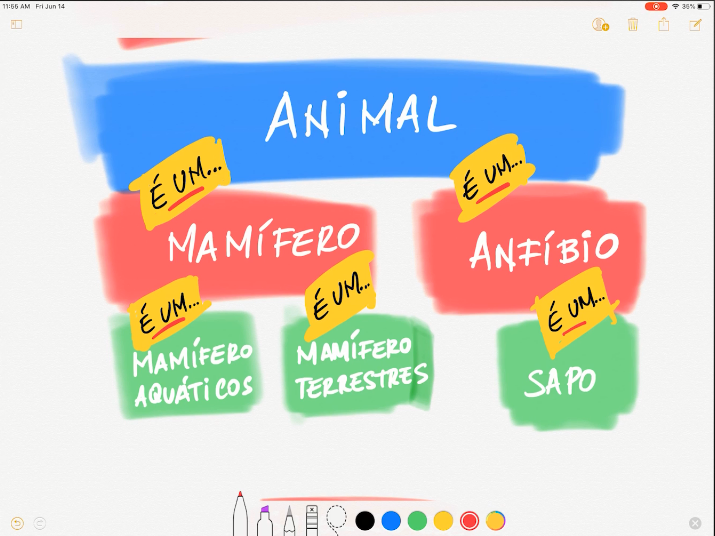 11:56 AM Fri Jun 14
35%
ANIMAL
É UM...
É UM...
MAMÍFERO
ANFÍBIO
É UM...
É UM...
É UM...
MAMÍFERO
AQUÁTICOS
MAMÍFERO
TERRESTRES
SAPO